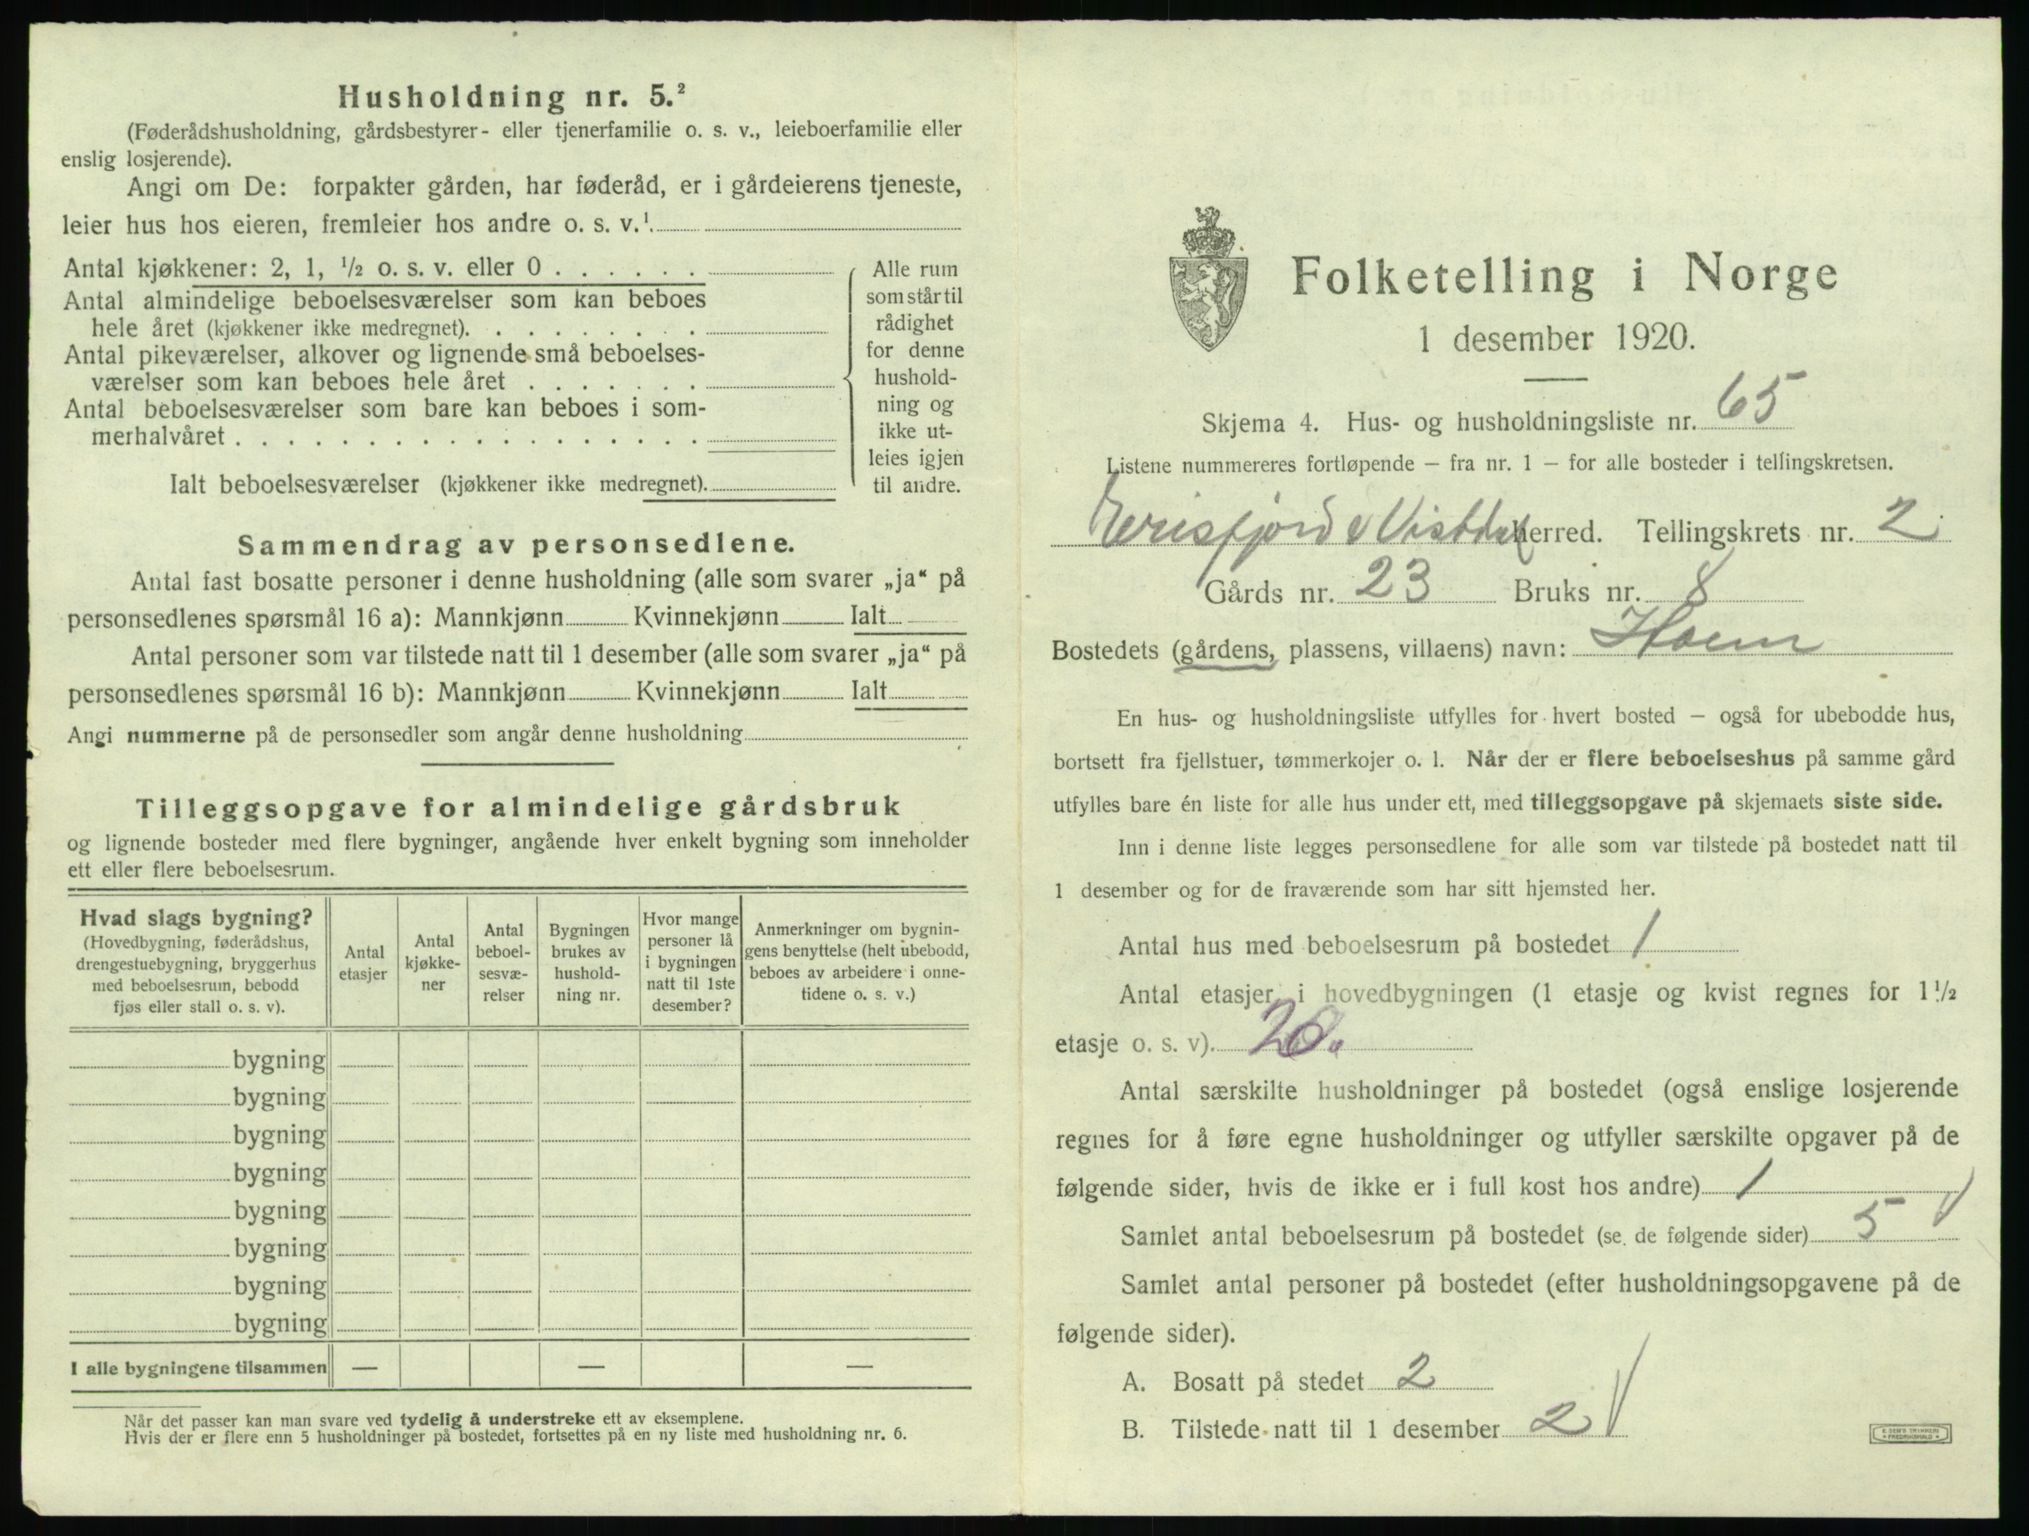 Husholdning nr. 5.²
(Føderådshusholdning, gårdsbestyrer- eller tjenerfamilie o. s. v., leieboerfamilie eller
enslig losjerende).
Angi om De: forpakter gården, har føderåd, er i gårdeierens tjeneste,
leier hus hos eieren, fremleier hos andre o. s. v.¹.
Antal kjøkkener: 2, 1, ½ o. s. v. eller 0 . . . . . .
Antal almindelige beboelsesværelser som kan beboes
hele året (kjøkkener ikke medregnet). . . . . . . . .
Antal pikeværelser, alkover og lignende små beboelses-
værelser som kan beboes hele året . . . . . . .
Antal beboelsesværelser som bare kan beboes i som-
merhalvåret . . . . . . . . . . . . . . . . . .
Ialt beboelsesværelser (kjøkkener ikke medregnet).
Alle rum
som står til
rådighet
for denne
hushold-
ning og
ikke ut-
leies igjen
til andre.
Sammendrag av personsedlene.
Antal fast bosatte personer i denne husholdning (alle som svarer „ja“ på
personsedlenes spørsmål 16 a): Mannkjønn Kvinnekjønn Ialt
Antal personer som var tilstede natt til 1 desember (alle som svarer „ja“ på
personsedlenes spørsmål 16 b): Mannkjønn Kvinnekjønn Ialt
Angi nummerne på de personsedler som angår denne husholdning
Tilleggsopgave for almindelige gårdsbruk
og lignende bosteder med flere bygninger, angående hver enkelt bygning som inneholder
ett eller flere beboelsesrum.
Hvad slags bygning?
(Hovedbygning, føderådshus,
drengestuebygning, bryggerhus
med beboelsesrum, bebodd
fjøs eller stall o. s. v).
Antal
etasjer
Antal
kjøkke-
ner
Antal
beboel-
sesvæ-
relser
Bygningen
brukes av
hushold-
ning nr.
Hvor mange
personer lå
i bygningen
natt til 1ste
desember?
Anmerkninger om bygnin-
gens benyttelse (helt ubebodd,
beboes av arbeidere i onne-
tidene o. s. v.)
bygning
bygning
bygning
bygning
bygning
bygning
bygning
bygning
I alle bygningene tilsammen — — —
Når det passer kan man svare ved tydelig å understreke ett av eksemplene.
Hvis der er flere enn 5 husholdninger på bostedet, fortsettes på en ny liste med husholdning nr. 6.
Folketelling i Norge
1 desember 1920.
Skjema 4. Hus- og husholdningsliste nr. 65
Listene nummereres fortløpende — fra nr. 1 — for alle bosteder i tellingskretsen.
Erisfjord & Vistdal herred. Tellingskrets nr. 2
Gårds nr. 23 Bruks nr. 8
Bostedets (gårdens, plassens, villaens) navn: Hoem
En hus- og husholdningsliste utfylles for hvert bosted — også for ubebodde hus,
bortsett fra fjellstuer, tømmerkojer o. l. Når der er flere beboelseshus på samme gård
utfylles bare én liste for alle hus under ett, med tilleggsopgave på skjemaets siste side.
Inn i denne liste legges personsedlene for alle som var tilstede på bostedet natt til
1 desember og for de fraværende som har sitt hjemsted her.
Antal hus med beboelsesrum på bostedet 1
Antal etasjer i hovedbygningen (1 etasje og kvist regnes for 1½
etasje o. s. v). 20.
Antal særskilte husholdninger på bostedet (også enslige losjerende
regnes for å føre egne husholdninger og utfyller særskilte opgaver på de
følgende sider, hvis de ikke er i full kost hos andre) 1
Samlet antal beboelsesrum på bostedet (se de følgende sider) 5
Samlet antal personer på bostedet (efter husholdningsopgavene på de
følgende sider).
A. Bosatt på stedet 2
B. Tilstede natt til 1 desember 2